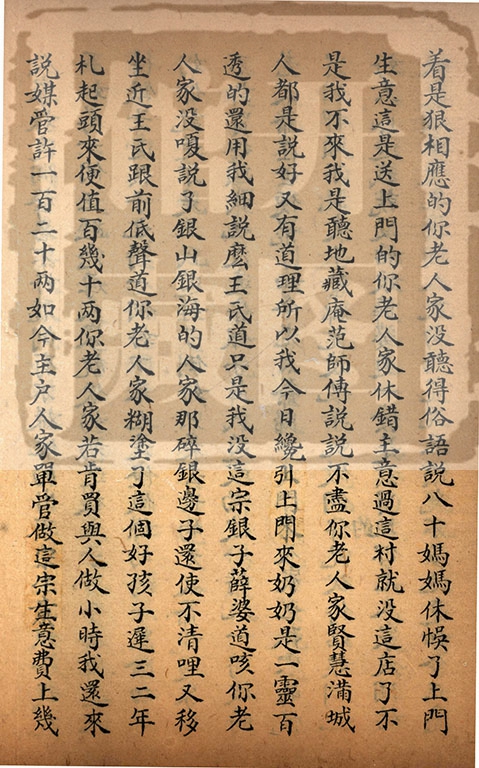 着是狠相應的你老人家没聽得俗語說八十媽媽休悞了上門
生意這是送上門的你老人家休錯主意過這村就没這店了不
是我不來我是聽地藏庵范師傅說說不盡你老人家賢慧滿城
人都是說好又有道理所以我今日纔引上門來奶奶是一靈百
透的還用我細說麽王氏道只是我没這宗銀子薛婆道咳你老
人家没嗄說了銀山銀海的人家那碎銀邊子還使不清哩又移
坐近王氏跟前低聲道你老人家糊塗了這個好孩子遲三二年
札起頭來便值百幾十两你老人家若肯買與人做小時我還來
說媒管許一百二十两如今主户人家單管做這宗生意費上幾